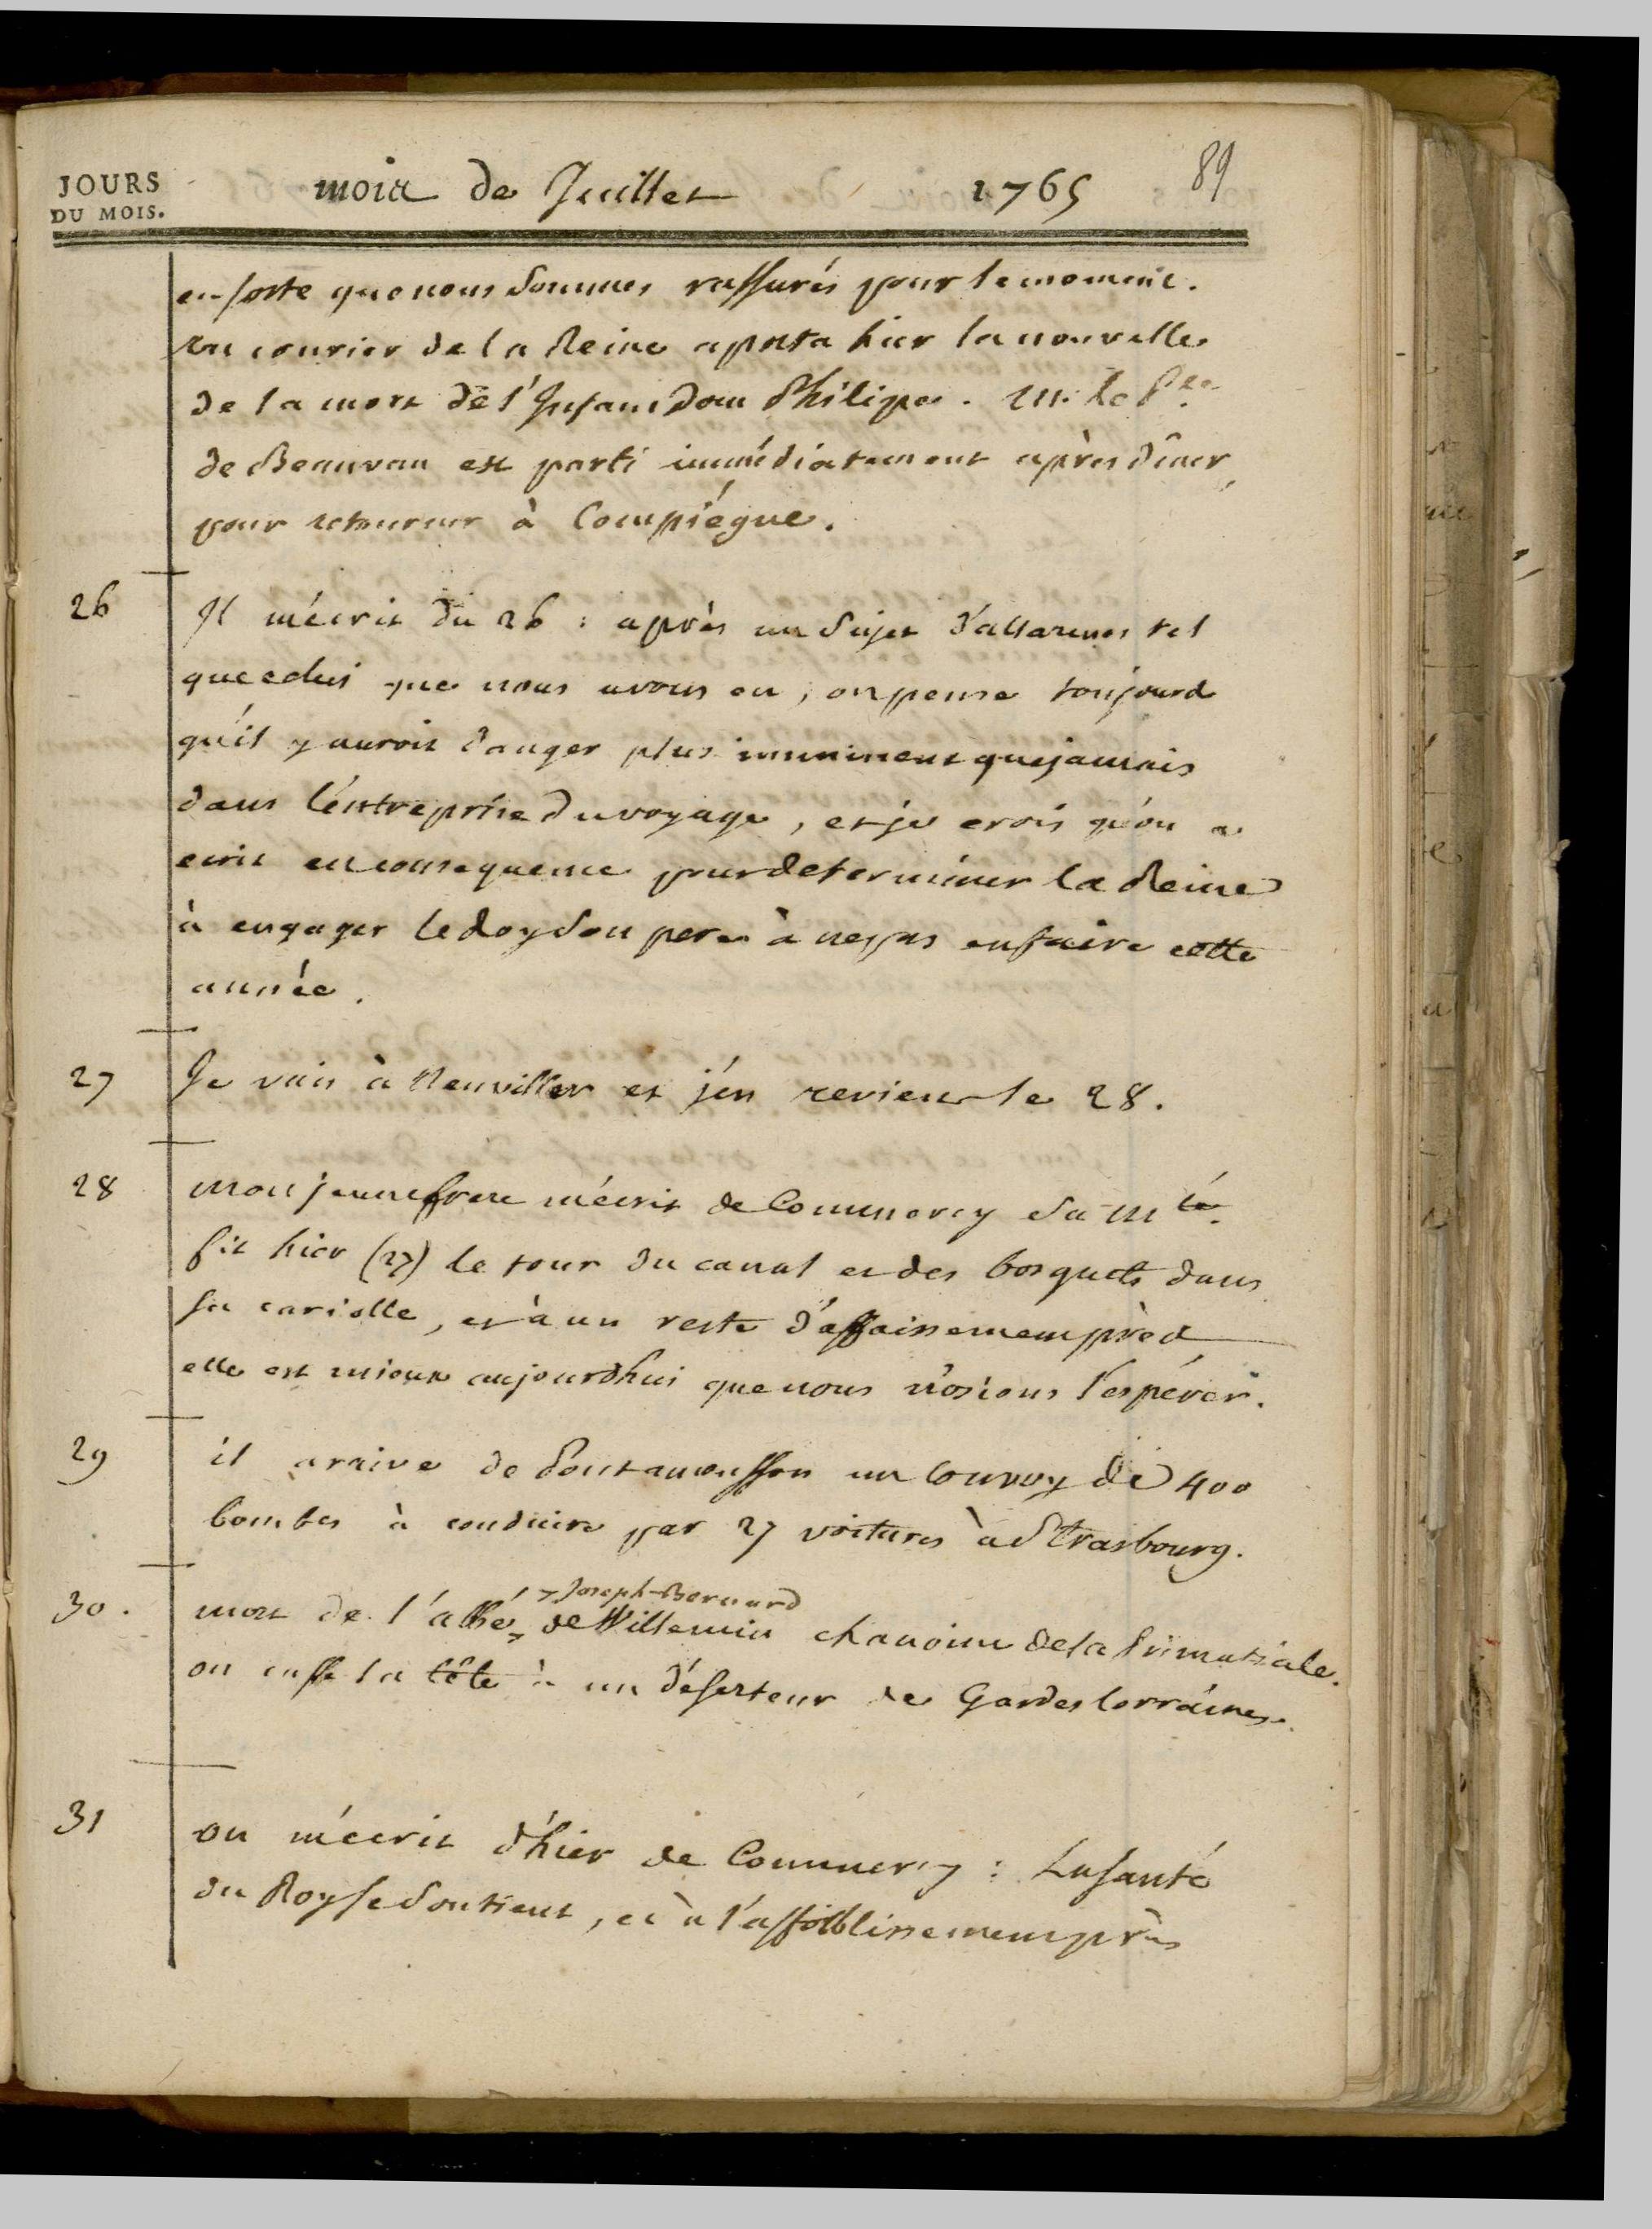 JOURS
DU MOIS.
mois de Juillet 1765 89
en sorte que nous sommes rassurés pour le moment.
un courier de la Reine aporta hier la nouvelle
de la mort de l'Infant Dom Philipe. M. le Pce
de Beauvau est parti immédiatement après diner,
pour retourner à Compiégne.
26 Il m'écrit du 26 : après un sujet d'allarmes tel
que celui que nous avons eu, on pense toujours
qu'il y auroit danger plus imminent que jamais
dans l'entreprise du voyage, et je crois qu'on a
ecrit en consequence pour determiner la Reine
à engager le Roy son pere à ne pas en faire cette
année.
27 Je vais à Neuviller et j'en reviens le 28.
28 mon jeune frere m'écrit de Commercy sa Mté
fit hier (27) le tour du canal et des bosquets dans
sa cariolle, et à un reste d'affaissement près
elle est mieux aujourdhui que nous n'osions l'espérer.
29 il arrive de Pontamousson un convoy de 400
bombes à conduire par 27 voitures à Strasbourg.
30. mort de l'abbé Joseph-Bernard de Willemin chanoine de la Primatiale.
on casse la tête à un déserteur de Gardes lorraines.
31 on m'écrit d'hier de Commercy : La santé
du Roy se soutient, et à l'affoiblissement près